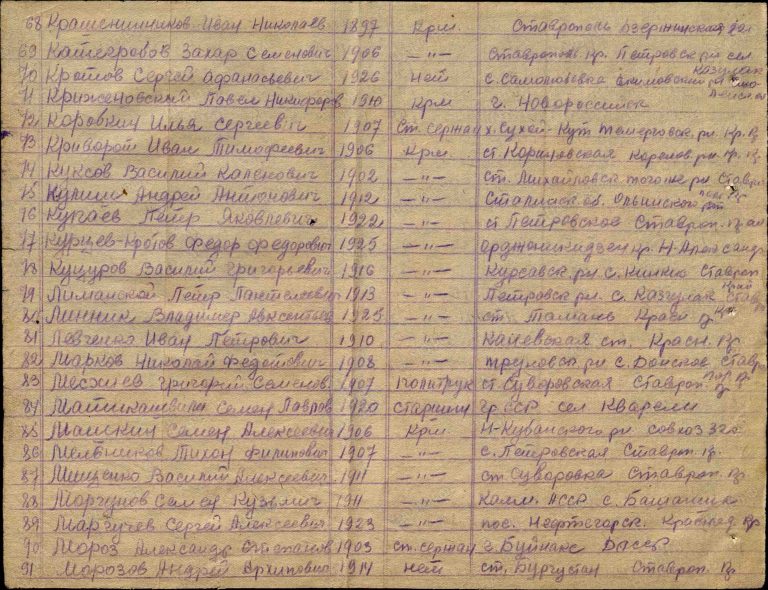 68 Крашенинников Иван Николаев 1897 Крм. Ставрополь Дзержинская
69 Катеров Захар Семенович 1906 —"— Ставрополь. кр. Петровск рн сел
Казгулак
70 Кротов Сергей Афанасьевич 1926 нет с. Самойловка
71 Крижановский Павел Никифоров 1910 крм г. Новороссийск
72 Коробкин Илья Сергеевич 1907 ст. сержан х. Сухой-Кут
73 Криворой Иван Тимофеевич 1906 Крм. ст.
74 Куксов Василий 1902 —"— ст. Михайловск тогоже рн Ставр
75 Кулиш Андрей Антонович 1912 —"— Сталинск. об. Ольгинского
76 Кугаев Петр Яковлевич 1922 —"— ст Петровское Ставроп.
77 Курцев-Кротов Федор Федорович 1925 —"— Орджоникидзен кр. Н-Александ
78 Куцуров Василий Григорьевич 1916 —"— Курсавск. рн с. Ставроп
край
79 Лиманской Петр Пантелеевич 1913 —"— Петровск рн. с. Казгулак Ставр
80 Линник Владимер Авксентьев 1925 —"— ст Тамань Красн
81 Левченко Иван Петрович 1910 —"— Каневская ст. Красн. кр.
82 Марков Николай 1908 —"— труновск рн с. Донское Ставр
83 Григорий Семенов 1907 политрук ст Суворовская Ставроп
84 Семен Лавров 1920 старшин гр. ССР сел Кварели
85 Майскии Семен Алексеевич 1906 Крм Н-Кубанского рн совхоз
86 Мельников Тихон Филипович 1907 —"— с. Петровская Ставроп. кр.
87 Мищенко Василий Алексеевич 1911 —"— ст Суворовка Ставроп. кр
88 Моргунов Семен Кузьмич 1911 —"— Калм. АССР с. Башанта
89 Маргучев Сергей Алексеевич 1923 —"— пос. Нефтегорск. Краснод кр
90 Мороз Александр Степанов 1903 ст. сержан г. Буйнакс ДАССР
91 Морозов Андрей Архипович 1914 нет ст. Бургустан Ставроп. кр